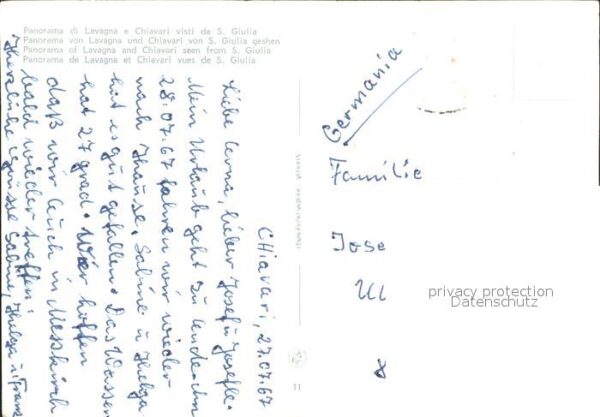 Panorama di Lavagna e Chiavari visti da S. Giulia
Panorama von Lavagna und Chiavari von S. Giulia gesehen
Panorama of Lavagna and Chiavari seen from S. Giulia
Panorama de Lavagna et Chiavari vues de S. Giulia
Chiavari, 27.07.67
Liebe Corna, lieber Josef u. Josefle.
Mein Urlaub geht zu Ende am
28.07.67 fahren wir wieder
nach Hause. Sabine u Helga
hat es gut gefallen. Das Wasser
hat 27 grad. Wir hoffen
daß wir Euch in Messkirch
bald wieder treffen.
Herzliche Grüsse Sabine, Helga u. Franz
Germania
Familie
Jose
Ul
privacy protection
Datenschutz
11